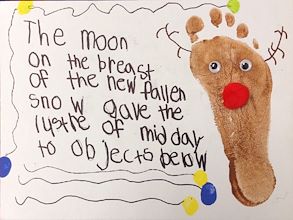 The moon
on the breast
of the new fallen
snow gave the
lustre of mid day
to objects below